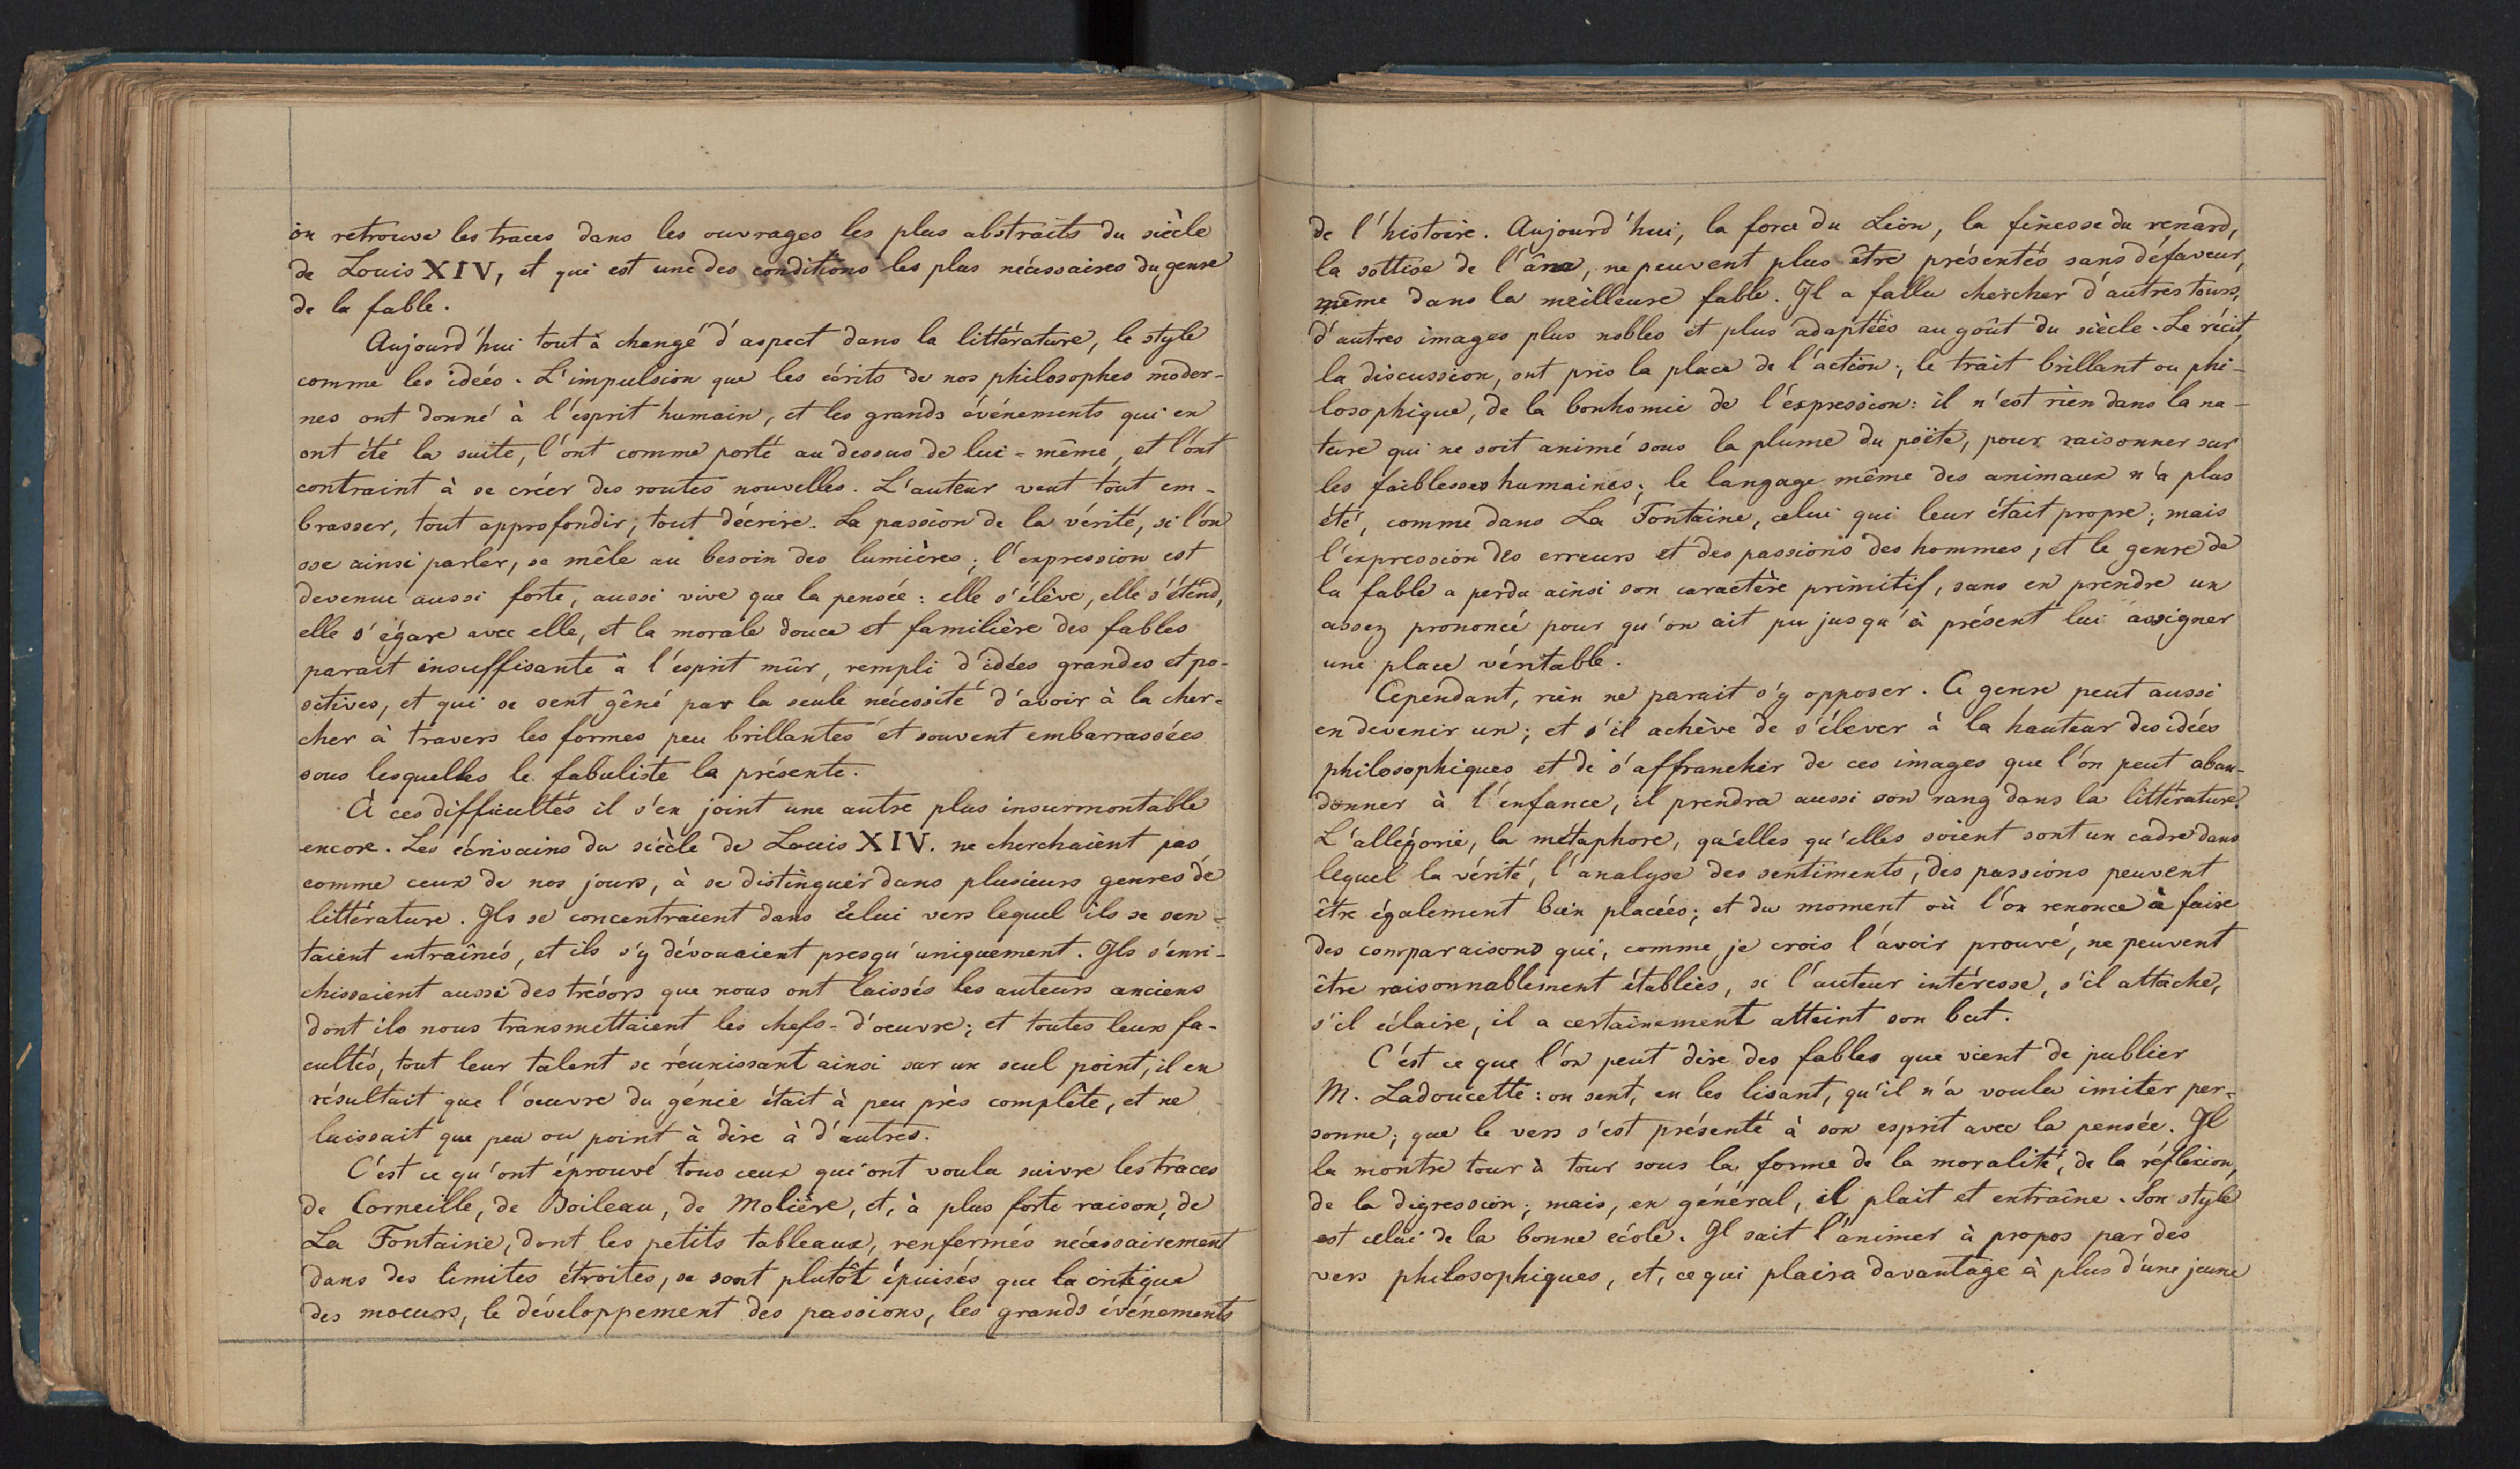 on retrouve les traces dans les ouvrages les plus abstraits du siècle
de Louis XIV, et qui est une des conditions les plus nécessaires du genre
de la fable.
Aujourd'hui tout à changé d'aspect dans la littérature, le style
comme les idées. L'impulsion que les écrits de nos philosophes moder-
nes ont donné à l'esprit humain, et les grands événements qui en
ont été la suite, l'ont comme porté au dessus de lui-même, et l'ont
contraint à se créer des routes nouvelles. L'auteur veut tout em-
brasser, tout approfondir, tout décrire. La passion de la vérité, si l'on
ose ainsi parler, se mêle au besoin des lumières; l'expression est
devenue aussi forte, aussi vive que la pensée: elle s'élève, elle s'étend,
elle s'égare avec elle, et la morale douce et familière des fables
parait insuffisante à l'esprit mûr, rempli d'idées grandes et po-
sitives, et qui se sent gêné par la seule nécessité d'avoir à la cher-
cher à travers les formes peu brillantes et souvent embarrassées
sous lesquelles le fabuliste la présente.
À ces difficultés il s'en joint une autre plus insurmontable
encore. Les écrivains du siècle de Louis XIV. ne cherchaient pas
comme ceux de nos jours, à se distinguer dans plusieurs genres de
littérature. Ils se concentraient dans celui vers lequel ils se sen-
taient entraînés, et ils s'y dévouaient presqu'uniquement. Ils s'enri-
chissaient aussi des trésors que nous ont laissés les auteurs anciens
dont ils nous transmettaient les chefs-d'oeuvre; et toutes leurs fa-
cultés, tout leur talent se réunissant ainsi sur un seul point, il en
résultait que l'oeuvre du génie était à peu près complète, et ne
laissait que peu ou point à dire à d'autres.
C'est ce qu'ont éprouvé tous ceux qui ont voulu suivre les traces
de Corneille, de Boileau, de Molière, et, à plus forte raison, de
La Fontaine, dont les petits tableaux, renfermés nécessairement
dans des limites étroites, se sont plutôt épuisés que la critique
des moeurs, le développement des passions, les grands événements
de l'histoire. Aujourd'hui, la force du Lion, la finesse du renard,
la sottise de l'âne, ne peuvent plus être présentés sans défaveur,
même dans la meilleure fable. Il a fallu chercher d'autres tours,
d'autres images plus nobles et plus adaptées au goût du siècle. Le récit,
la discussion, ont pris la place de l'action; le trait brillant ou phi-
losophique, de la bonhomie de l'expression: il n'est rien dans la na-
ture qui ne soit animé sous la plume du poëte, pour raisonner sur
les faiblesses humaines; le langage même des animaux n'a plus
été, comme dans La Fontaine, celui qui leur était propre; mais
l'expression des erreurs et des passions des hommes, et le genre de
la fable a perdu ainsi son caractère primitif, sans en prendre un
assez prononcé pour qu'on ait pu jusqu'à présent lui assigner
une place véritable.
Cependant, rien ne parait s'y opposer. Ce genre peut aussi
en devenir un; et s'il achève de s'élever à la hauteur des idées
philosophiques et de s'affranchir de ces images que l'on peut aban-
donner à l'enfance, il prendra aussi son rang dans la littérature.
L'allégorie, la métaphore, qu'elles qu'elles soient sont un cadre dans
lequel la vérité, l'analyse des sentiments, des passions peuvent
être également bien placées; et du moment où l'on renonce à faire
des comparaisons qui, comme je crois l'avoir prouvé, ne peuvent
être raisonnablement établies, si l'auteur intéresse, s'il attache,
s'il éclaire, il a certainement atteint son but.
C'est ce que l'on peut dire des fables que vient de publier
M. Ladoucette: on sent, en les lisant, qu'il n'a voulu imiter per-
sonne; que le vers s'est présenté à son esprit avec la pensée. Il
la montre tour à tour sous la forme de la moralité, de la réflexion,
de la digression; mais, en général, il plait et entraîne. Son style
est celui de la bonne école. Il sait l'animer à propos par des
vers philosophiques, et, ce qui plaira davantage à plus d'une jeune